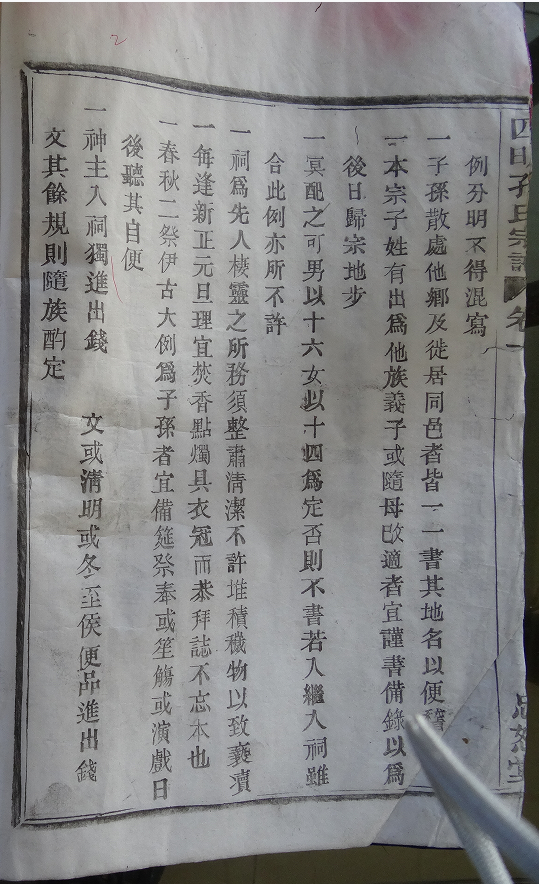 四明孔氏宗譜 卷一
忠恕堂
例分明不得混寫
一子孫散處他鄉及徙居同邑者皆一一書其地名以便
一本宗子姓有出爲他族義子或隨母改適者宜謹書備錄以爲
後日歸宗地步
一冥配之可男以十六女以十四爲定否則不書若入繼入祠雖
合此例亦所不許
一祠爲先人棲靈之所務須整肅清潔不許堆積穢物以致褻瀆
一每逢新正元旦理宜焚香點燭具衣冠而恭拜誌不忘本也
一春秋二祭伊古大例爲子孫者宜備筵祭奉或笙觴或演戲日
後聽其自便
一神主入祠獨進出錢 文或清明或冬至俟便品進出錢
文其餘規則隨族酌定
2